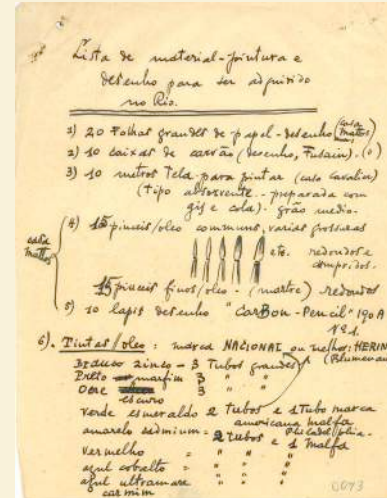 Lista de material-pintura e
desenho para ser adquirido
no Rio.
1) 20 Folhas grandes de papel-desenho (casa Mattos)
2) 10 caixas de carvão (desenho, Fusain). (")
3) 10 metros Tela para pintar (casa Cavalier)
(tipo absorvente - preparada com
gis e cola). grão medio.
casa Mattos
4) 15 pinceis/oleo communs, varias grossuras
etc. redondos e
compridos.
15 pinceis finos/oleo - (martre) redondos
5) 10 lapis desenho "CarBon-Pencil" 190A
Nº 1.
6). Tintas/oleo: marca NACIONAL ou melhor: HERING
(Blumenau
Branco zinco - 3 Tubos grandes
Dito marfim 3 " "
Ocre 3 " "
escuro
verde esmeraldo 2 tubos e 1 Tubo marca
americana Malfa
Philadelphia.
amarelo cadmium = 2 tubos e 1 Malfa
vermelho = " " "
azul cobalto = " " "
azul ultramare " " "
carmim
0093